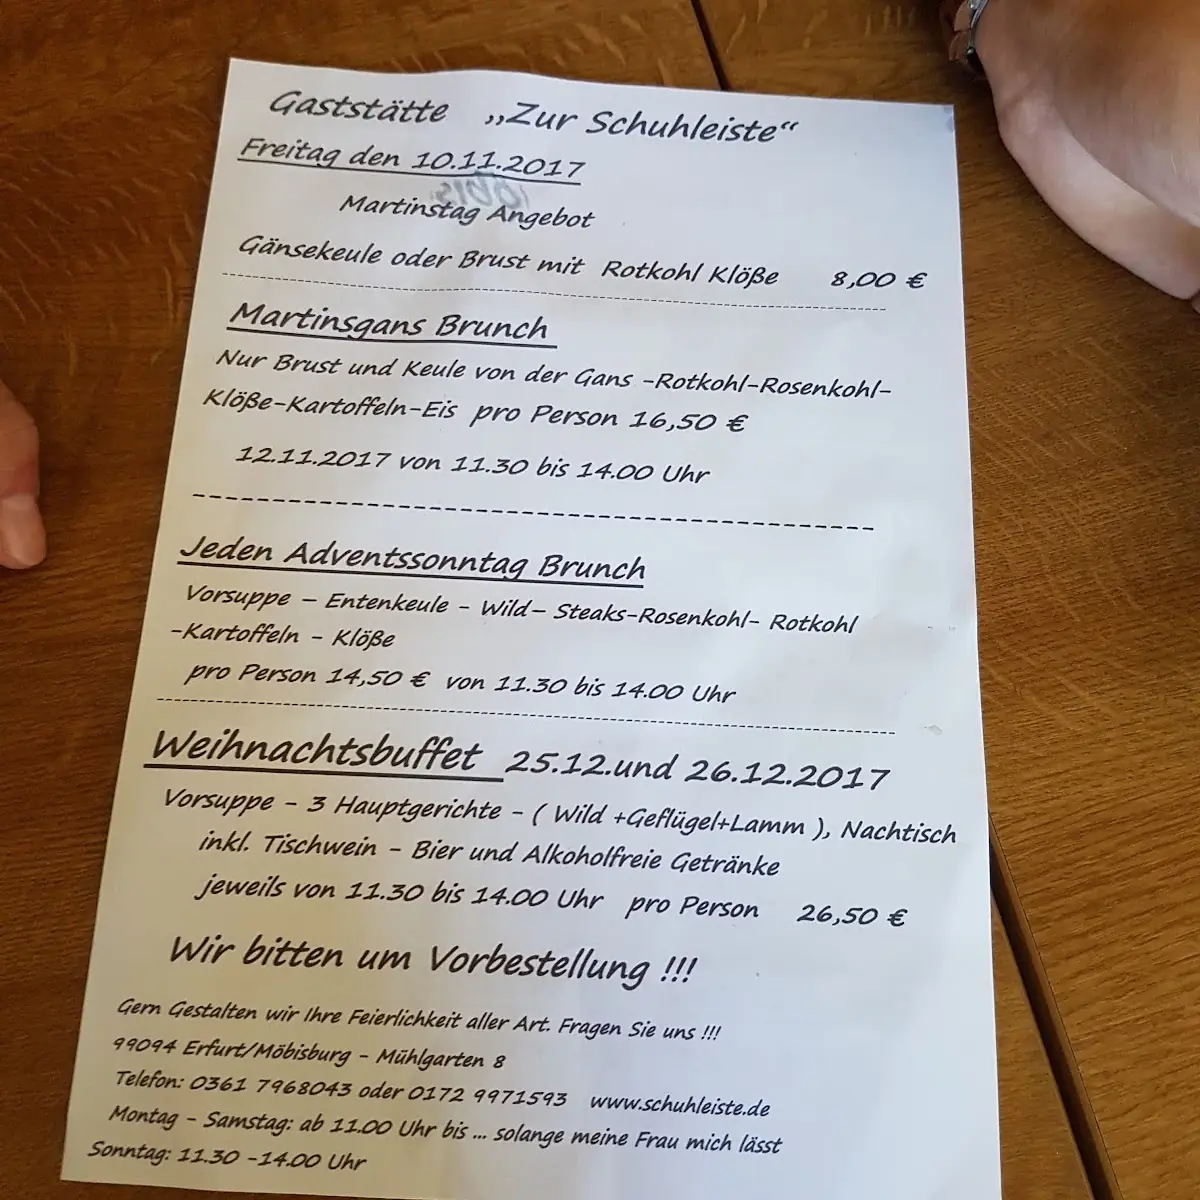 Gaststätte „Zur Schuhleiste“
Freitag den 10.11.2017
Martinstag Angebot
Gänsekeule oder Brust mit Rotkohl Klöße 8,00 €
Martinsgans Brunch
Nur Brust und Keule von der Gans -Rotkohl-Rosenkohl-
Klöße-Kartoffeln-Eis pro Person 16,50 €
12.11.2017 von 11.30 bis 14.00 Uhr
Jeden Adventssonntag Brunch
Vorsuppe – Entenkeule - Wild– Steaks-Rosenkohl- Rotkohl
-Kartoffeln - Klöße
pro Person 14,50 € von 11.30 bis 14.00 Uhr
Weihnachtsbuffet 25.12.und 26.12.2017
Vorsuppe - 3 Hauptgerichte - ( Wild +Geflügel+Lamm ), Nachtisch
inkl. Tischwein - Bier und Alkoholfreie Getränke
jeweils von 11.30 bis 14.00 Uhr pro Person 26,50 €
Wir bitten um Vorbestellung !!!
Gern Gestalten wir Ihre Feierlichkeit aller Art. Fragen Sie uns !!!
99094 Erfurt/Möbisburg - Mühlgarten 8
Telefon: 0361 7968043 oder 0172 9971593 www.schuhleiste.de
Montag - Samstag: ab 11.00 Uhr bis ... solange meine Frau mich lässt
Sonntag: 11.30 -14.00 Uhr